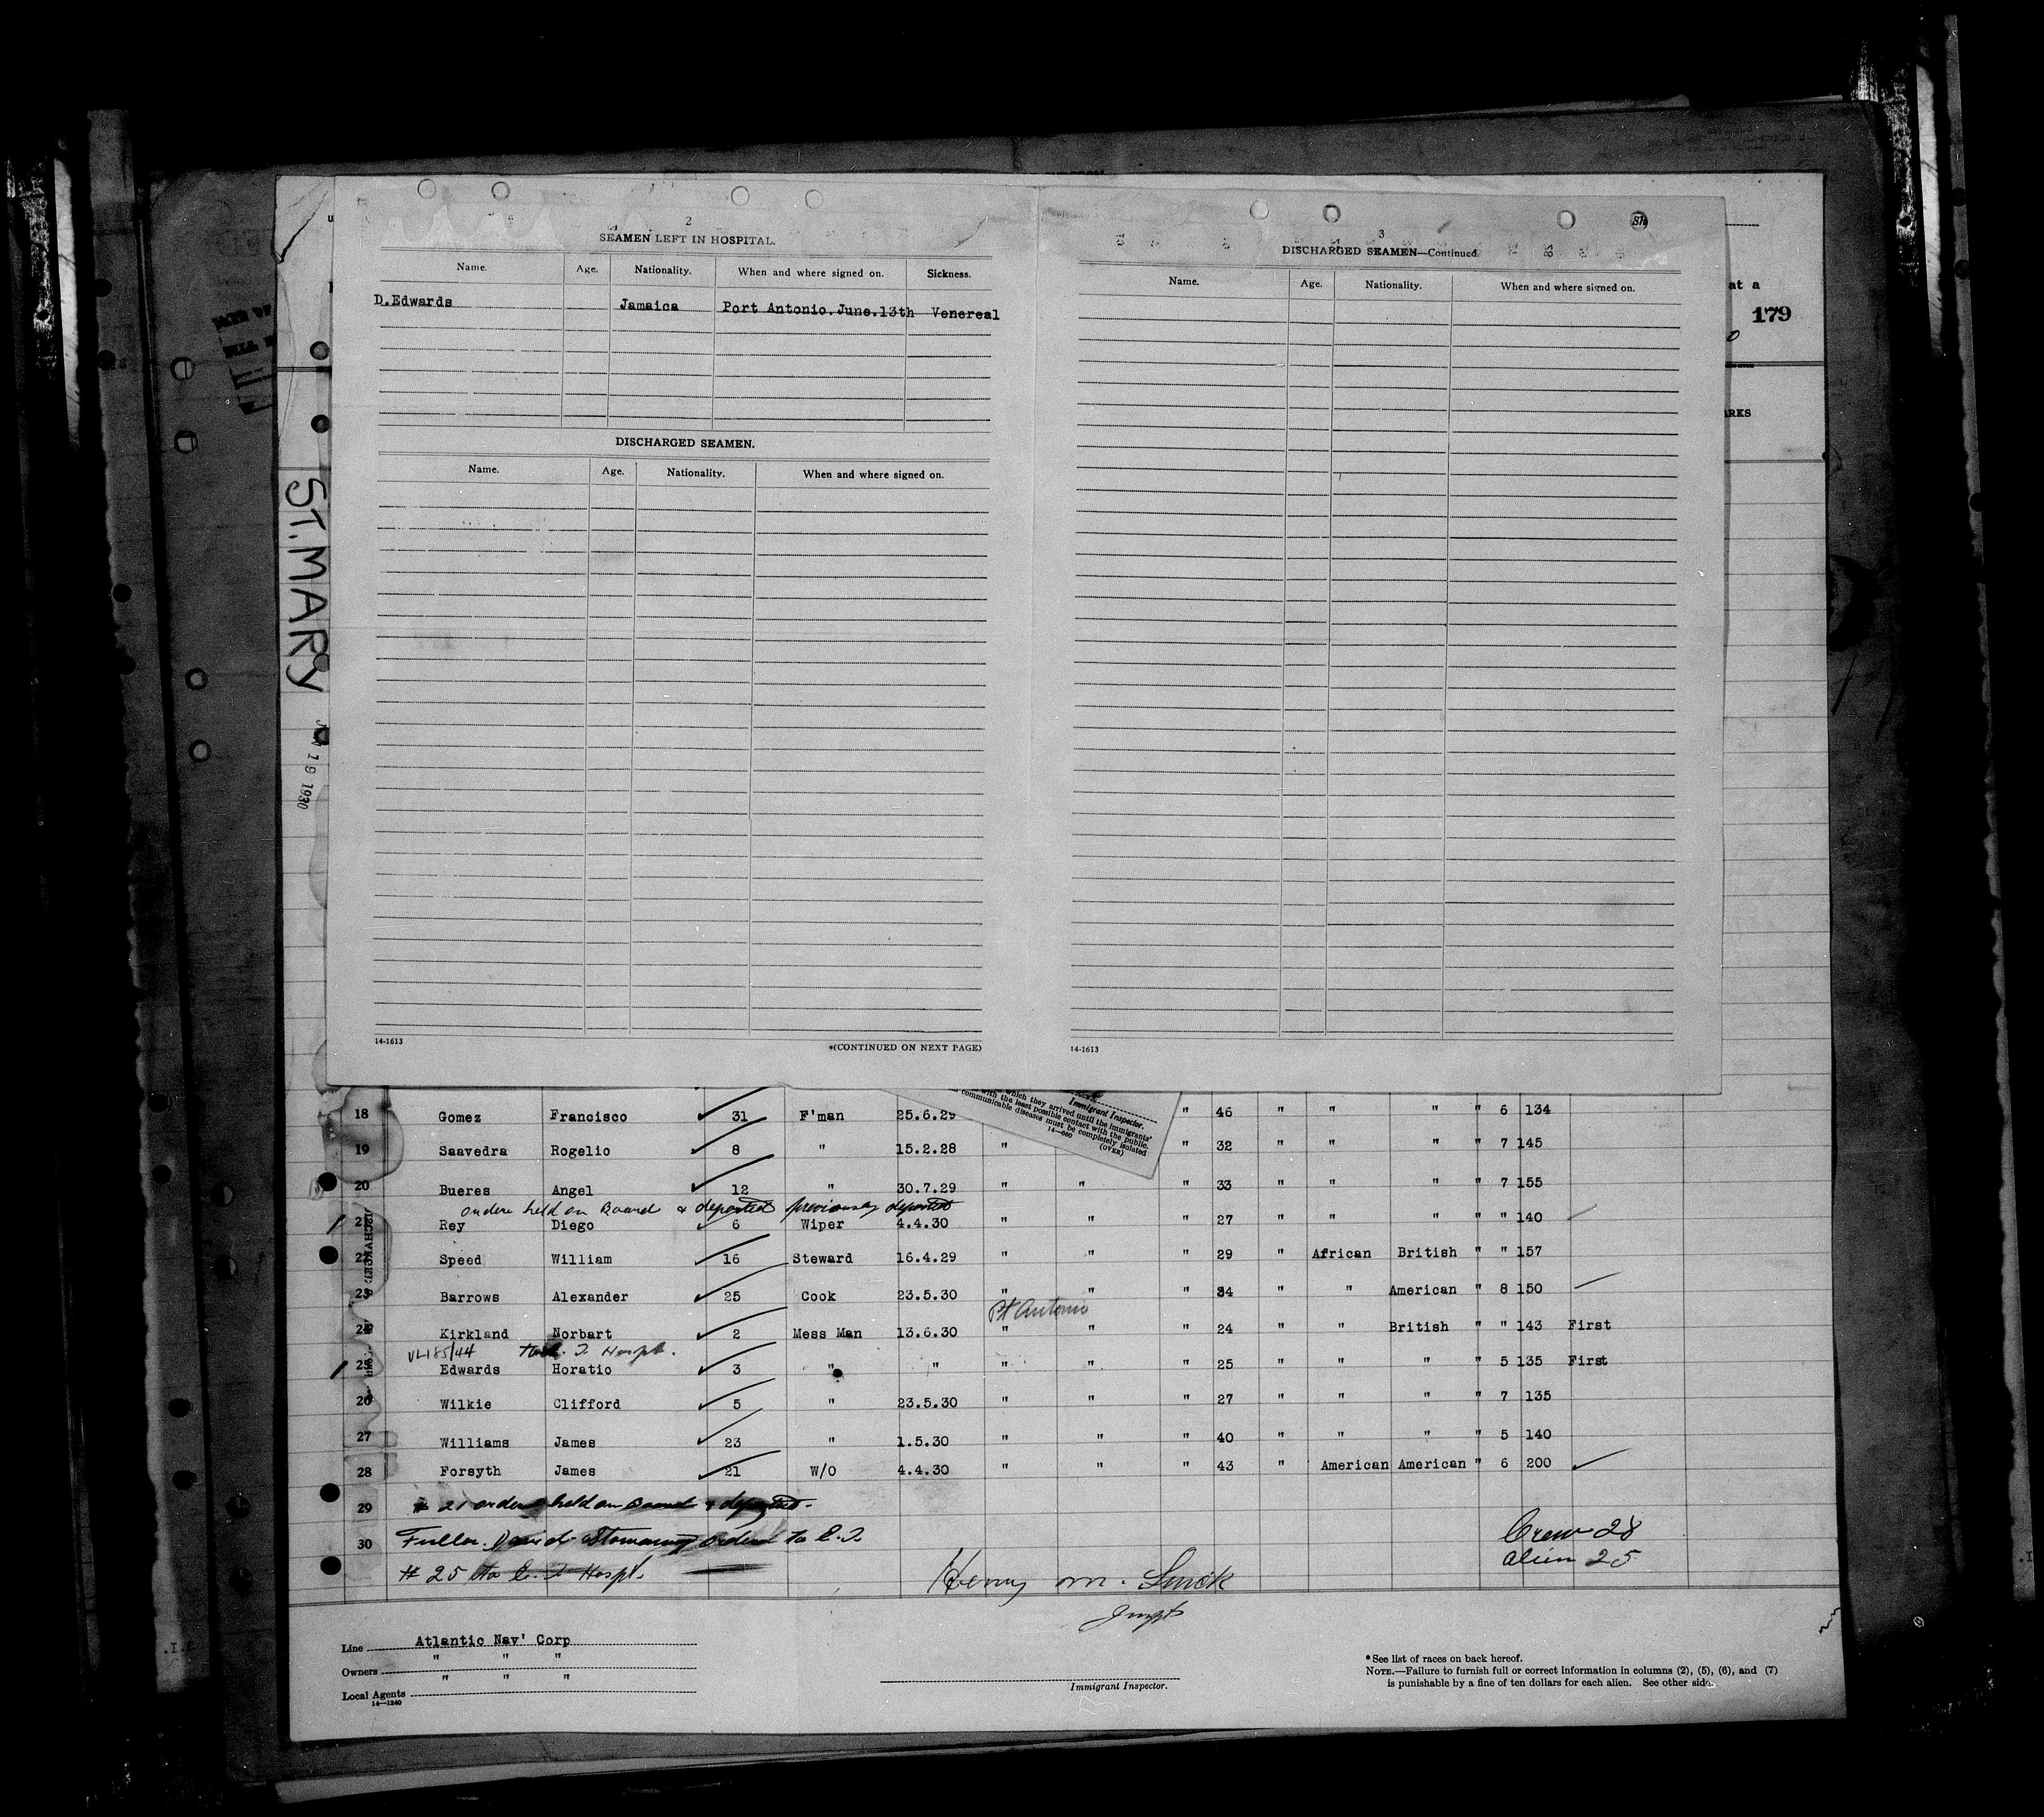 2
SEAMEN LEFT IN HOSPITAL.
Name. Age. Nationality. When and where signed on. Sickness.
D.Edwards Jamaica Port Antonio.June.13th Venereal
DISCHARGED SEAMEN.
Name. Age. Nationality. When and where signed on.
14-1613
*(CONTINUED ON NEXT PAGE)
3
DISCHARGED SEAMEN—Continued
Name. Age. Nationality. When and where signed on.
14-1613
at a
179
ARKS
ST.MARY
19 1930
Immigrant Inspector.
which they arrived until the immigrants'
with the least possible contact with the public.
communicable diseases must be completely isolated
14—660 (OVER)
18 Gomez Francisco 31 F'man 25.6.29 " 46 " " " " 6 134
19 Saavedra Rogelio 8 " 15.2.28 " " 32 " " " " 7 145
20 Bueres Angel 12 " 30.7.29 " " " 33 " " " " 7 155
ordere held on Board & deported previously deported
21 Rey Diego 6 Wiper 4.4.30 " " " 27 " " " " " 140
22 Speed William 16 Steward 16.4.29 " " " 29 " African British " " 157
23 Barrows Alexander 25 Cook 23.5.30 " " " 34 " " American " 8 150
Pt Antonio
24 Kirkland Norbart 2 Mess Man 13.6.30 " " " 24 " " British " " 143 First
VL185/44 Hospt.
25 Edwards Horatio 3 " " " " " 25 " " " " 5 135 First
26 Wilkie Clifford 5 " 23.5.30 " " " 27 " " " " 7 135
27 Williams James 23 " 1.5.30 " " " 40 " " " " 5 140
28 Forsyth James 21 W/O 4.4.30 " " " 43 " American American " 6 200
29 # 21 ordered held on Board & deported.
30 Fuller. David Stowaway ordered to E.I
Crew 28
alien 25
# 25 to E. I Hospt.
Henry M.
Inspt
Line Atlantic Nav' Corp
Owners " " "
Local Agents " " "
14—1240
Immigrant Inspector.
* See list of races on back hereof.
NOTE.—Failure to furnish full or correct information in columns (2), (5), (6), and (7)
is punishable by a fine of ten dollars for each alien. See other side.